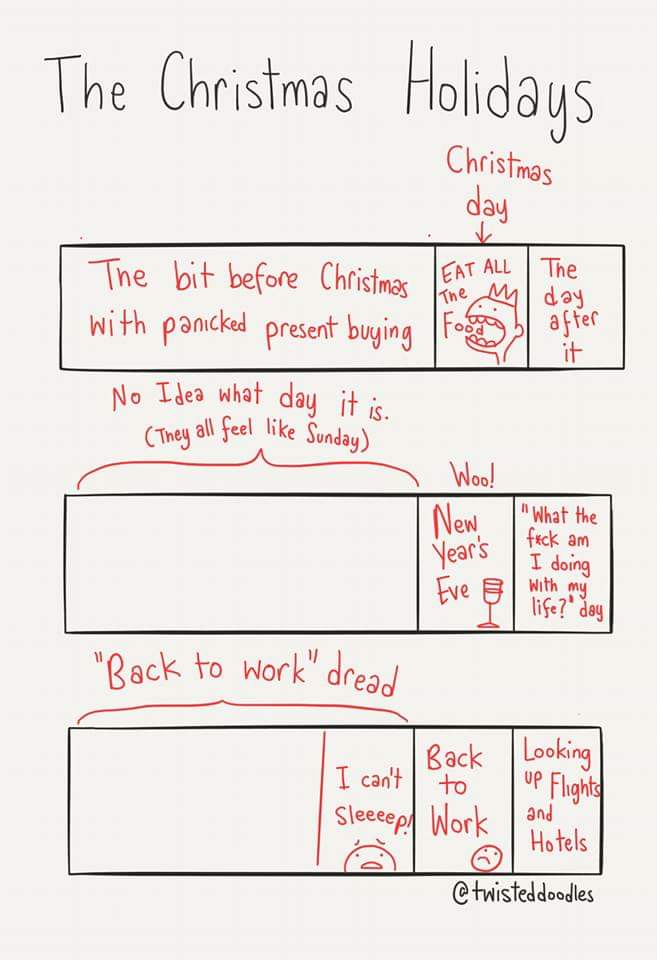 The Christmas Holidays
Christmas
day
The bit before Christmas
with panicked present buying
EAT ALL
The
Food
The
day
after
it
No Idea what day it is.
(They all feel like Sunday)
Woo!
New
Year's
Eve
"What the
f*ck am
I doing
with my
life?" day
"Back to work" dread
I can't
Sleeeep!
Back
to
Work
Looking
up Flights
and
Hotels
@twisteddoodles